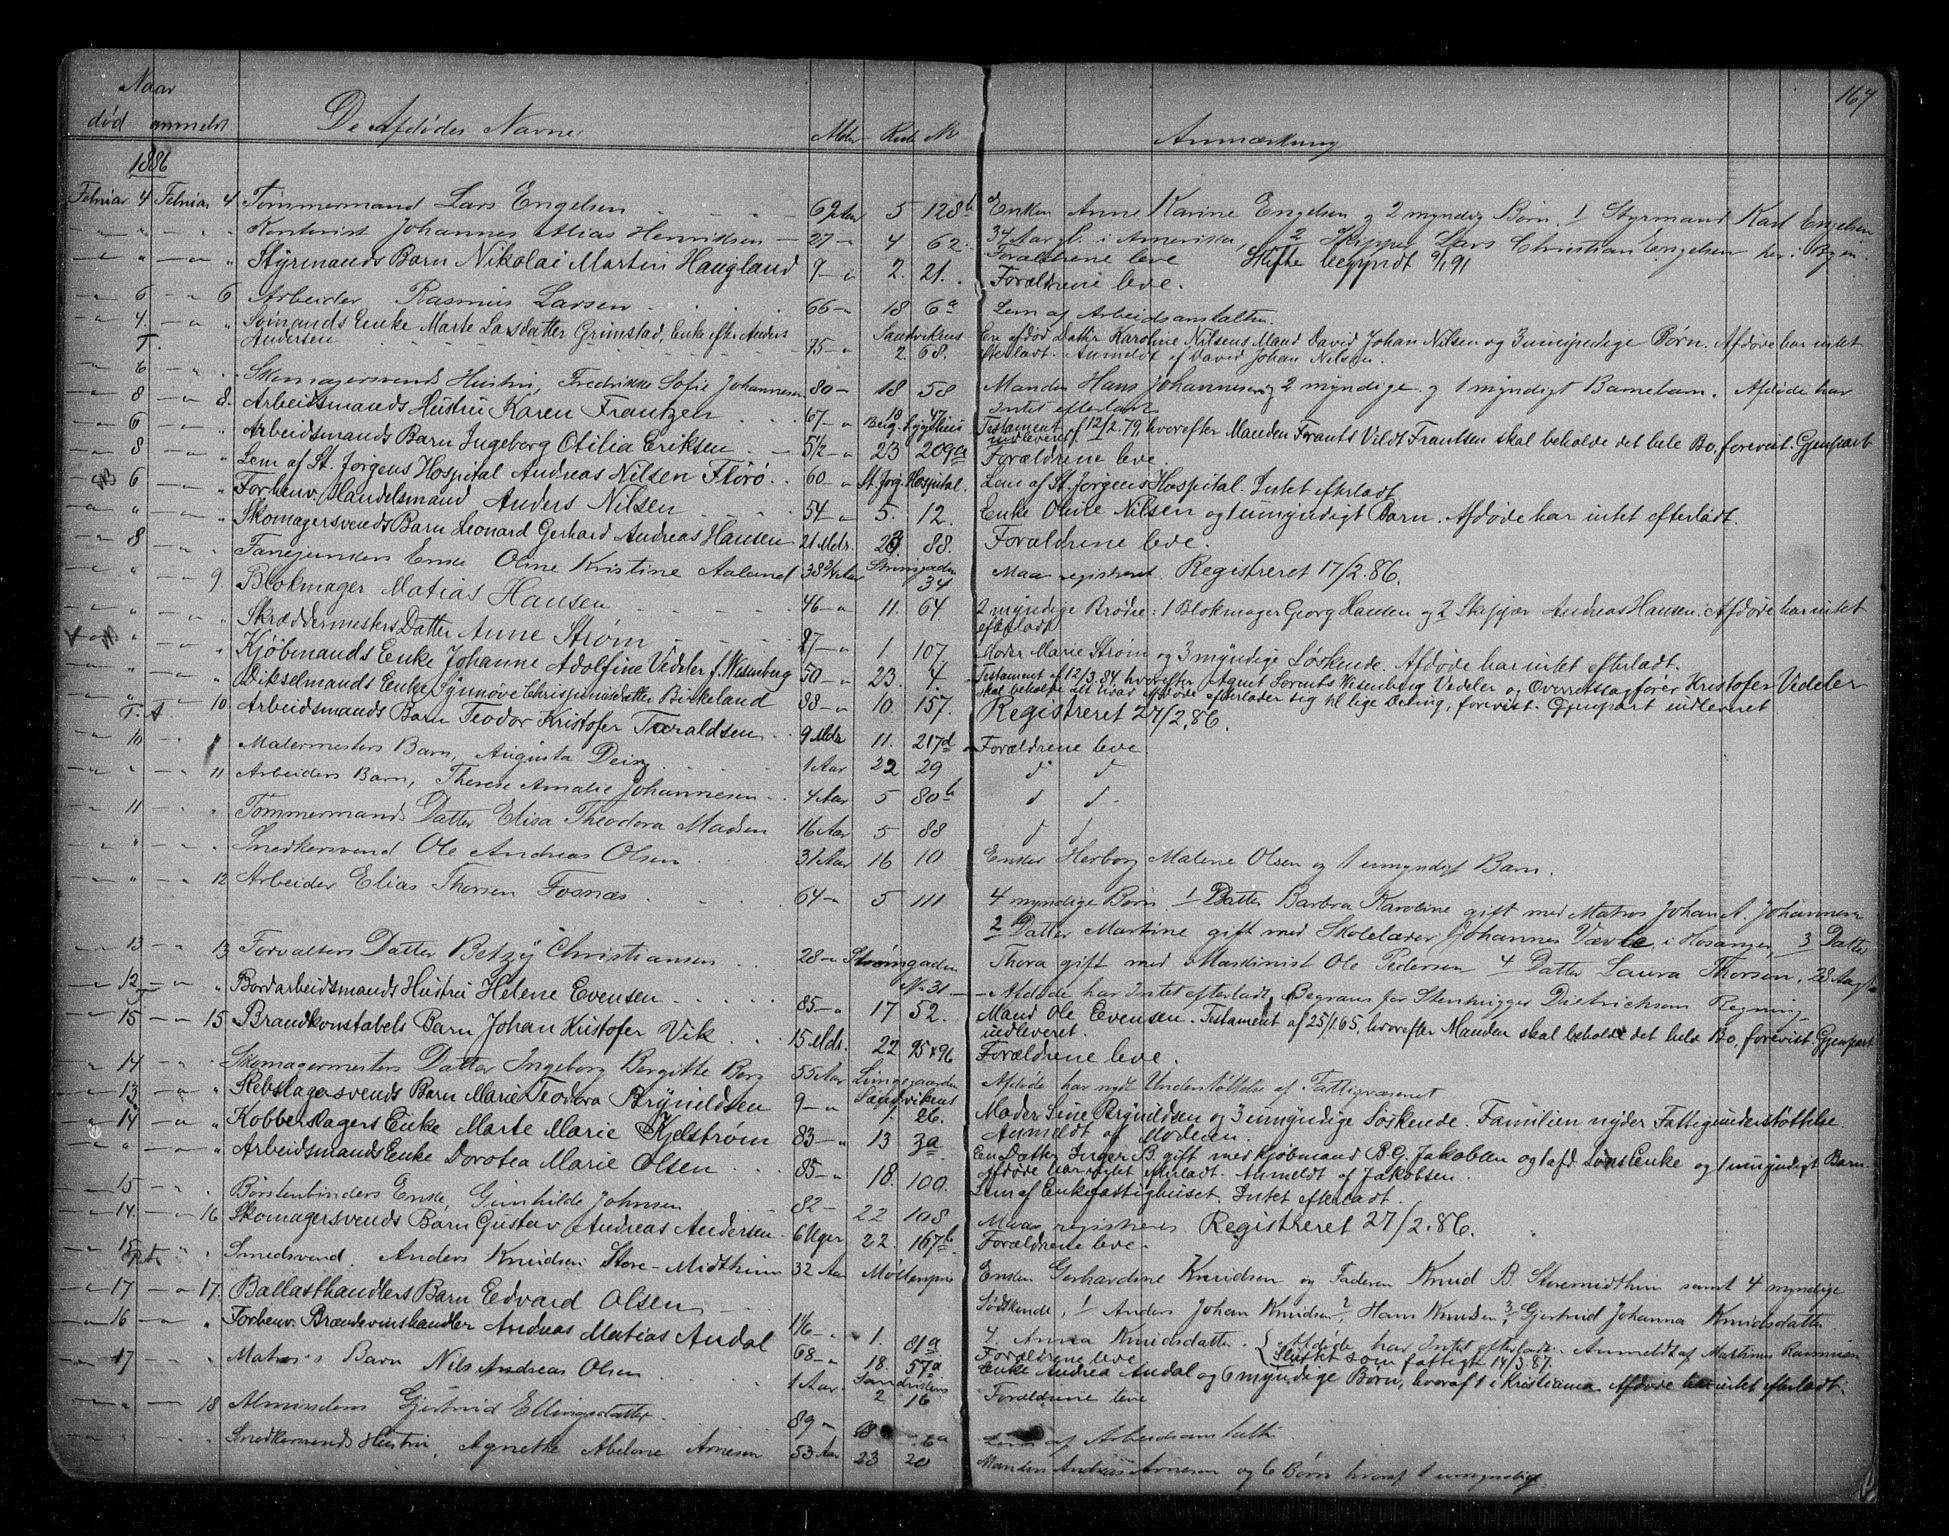 167
Naar
død anmeldt De Afdødes Navne Alder Rode No Anmærkning
1886
Februar 4 Februar 4 Tømmermand Lars Engelsen 62 Aar 5 128b Enken Anne Karine Engelsen og 2 myndig Børn. 1 Styrmand Karl Engelsen
" " Kontorist Johannes Alias Henriksen 27 " 4 62. 34 Aar gl. i Amerika, 2 Skipper Lars Christian Engelsen her i Byen.
Forældrene leve Skifte begyndt 9/1 91
" " Styrmands Barn Nikolai Martin Haugland 9 " 2. 21. Forældrene leve.
6 6 Arbeider, Rasmus Larsen 66 18 6a Lem af Arbeidsanstalten.
4. " Enke Marte Larsdatter Grimstad, Enke efter Anders
Andersen 75 " Sandvikens 2. 68. En afdød Datter Karoline Nilsens Mand David Johan Nilsen og 3 umyndige Børn. Afdøde har intet
efterladt. Anmeldt af David Johan Nilsen.
6 " Skomagersvends Hustru, Fredrikke Sofie Johannesen 80 18 58 Manden Hans Johannesen og 2 myndige og 1 myndigt Barnebarn. Afdøde har
Intet efterladt
8 8. Arbeidsmands Hustru Karen Frantzen 67 " 18 47 Testament af 12/2.79, hvorefter Manden Frants Vildt Frantsen skal beholde det hele Bo, forevist. Gjenpart
indleveret.
6 " Arbeidsmands Barn Ingeborg Otilia Eriksen 5 1/2 " 23 209a Forældrene leve.
8 " Lem af St. Jørgens Hospital Andreas Nilsen Florø 60 " St. Jørg. Hospital. Lem af St. Jørgens Hospital. Intet efterladt.
6 " Forhenv. Handelsmand Anders Nilsen 54 " 5. 12. Enke Oline Nilsen og 1 umyndigt Barn. Afdøde har intet efterladt.
" " Skomagersvends Barn Leonard Gerhard Andreas Hansen 21 Mdr. 23. 88. Forældrene leve.
8 " Enke Oline Kristine Aaland 38 3/4 Aar Strømgaden 34 Maa registreret. Registreret 17/2.86.
" 9. Blokmager Matias Hansen 46 " 11. 64. 2 myndige Brødre: 1 Blokmager Georg Hansen og 2 Skipper Andreas Hansen. Afdøde har intet
efterladt
" " Skræddermesters Datter Anne Strøm 87 " 1. 107 Moder Marie Strøm og 3 myndige Søskende. Afdøde har intet efterladt.
" " Kjøbmands Enke Johanne Adolfine Vedeler f. Wesenberg 50 " 23. 4. Testament af 12/3.84, hvorefter Agent Lorents Wesenberg Vedeler og Overretssagfører Kristofer Vedeler
skal beholde alt hvad Afdøde efterlader sig til lige Deling, forevist. Gjenpart indleveret
" " Enke Synnøve Birkeland 88 " 10. 157. Registreret 27/2.86.
10 Arbeidsmands Barn Teodor Kristofer Taraldsen 9 Mdr 11. 217d Forældrene leve.
10 " Malermesters Barn, Augusta 1 Aar 22 29 d d
" 11 Arbeiders Barn, Therese Amalie Johannesen 4 Aar 5 80b d d
11 " Tømmermands Datter Elisa Theodora Madsen 16 Aar 5 88 d d
" " Snedkersvend Ole Andreas Olsen 31 Aar 16 10 Enken Herborg Malene Olsen og 1 umyndigt Barn.
" 12 Arbeider Elias Thorsen Fosnæs 64 " 5 111 4 myndige Børn. 1 Datter Barbra Karoline gift med Matros Johan A. Johannesen
2 Datter Martine gift med Skolelærer Johannes i Hosanger, 3 Datter
13 13 Forvalters Datter Betzy Christiansen 28 " Strømgaden No 31 Thora gift med Maskinist Ole Pedersen 4 Datter Laura Thorsen, 28 Aar
Afdøde har Intet efterladt, Begraves for Stenhugger Dietrichson Regning
12 " Bordarbeidsmands Hustru Helene Evensen 85 " 17 52. Mand Ole Evensen. Testament af 25/1.65, hvorefter Manden skal beholde det hele Bo, forevist. Gjenpart
indleveret.
15 15 Brandkonstabels Barn Johan Kristofer Vik 15 Mdr. 22 95 & 96 Forældrene leve.
14 " Skomagermesters Datter Ingeborg Bergitte Berg 55 Aar Lungegaarden Afdøde har nydt Understøttelse af Fattigvæsenet
13 " Rebslagersvends Barn Marie Teodora Brynildsen 9 " Sandvikens 1. 26. Moder Sine Brynildsen og 3 umyndige Søskende. Familien nyder Fattigunderstøttelse.
Anmeldt af Moderen.
14 " Kobberslagers Enke Marte Marie Kjelstrøm 83 " 13 3a En Datter Inger B. gift med Kjøbmand B. G. Jakobsen og 1 afd. Søns Enke og 1 umyndigt Barn.
Afdøde har intet efterladt. Anmeldt af Jakobsen.
" " Arbeidsmands Enke Dorotea Marie Olsen 85 " 18. 100. Lem af Enkefattighuset. Intet efterladt.
15 " Børstenbinders Enke, Gunhilde Johnsen 82 22 108 Maa registreres Registreret 27/2.86.
14. 16 Skomagersvends Barn Gustav Andreas Andersen 6 Uger 22. 167b Forældrene leve.
15 " Smedsvend. Anders Knudsen Store-Midthun 32 Aar Møllenpris Enken Gerhardine Knudsen og Faderen Knud B. Storemidthun samt 4 myndige
Sødskende, 1 Anders Johan Knudsen, 2 Hans Knudsen, 3 Gjertrud Johanna Knudsdatter
4. Anna Knudsdatter. Afdøde har Intet efterladt. Anmeldt af Martinus Rasmusen
Sluttet som fattigt 14/3.87.
17 17. Ballasthandlers Barn Edvard Olsen 1 1/6 " 1. 81a Forældrene leve
16 " Forhenv. Brændevinshandler Andreas Matias Andal 68 " 18. 57a Enke Andrea Andal og 6 myndige Børn, hvoraf 1 i Kristiania. Afdøde har intet efterladt.
17 " Matros's Barn Nils Andreas Olsen 1 Aar. Sandvikens 2 16 Forældrene leve
" 18 Almisselem Gjertrud Ellingsdatter 89 " 18 6a Lem af Arbeidsanstalten.
" " Snedkersvends Hustru, Agnethe Abelone Arnesen 53 Aar 23 20 Manden Andreas Arnesen og 6 Børn hvoraf 1 umyndig